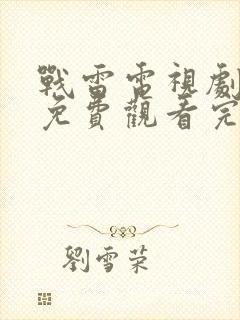 戰雷電視劇
免費觀看完
劉雪荣